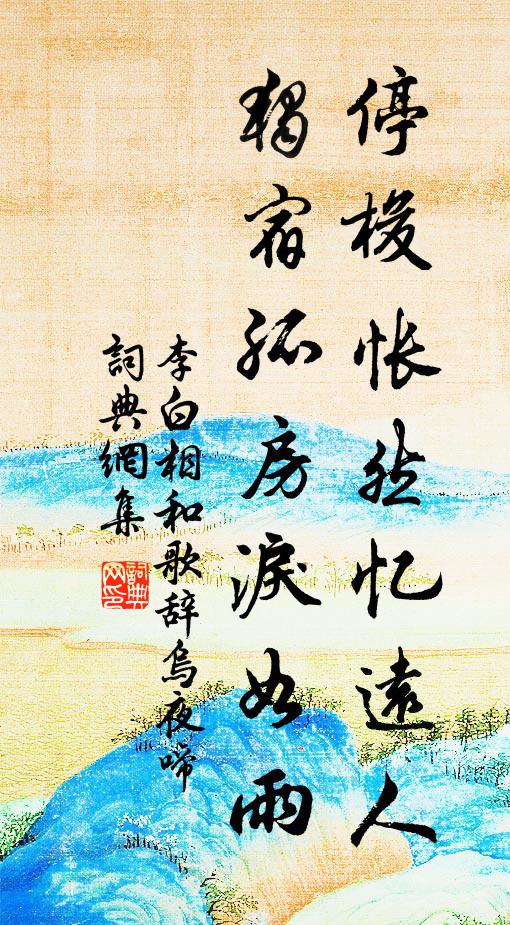 停梭悵然忆遠人
獨宿孤房淚如雨
李白相和歌辞烏夜啼
詞典網集
詞典网印